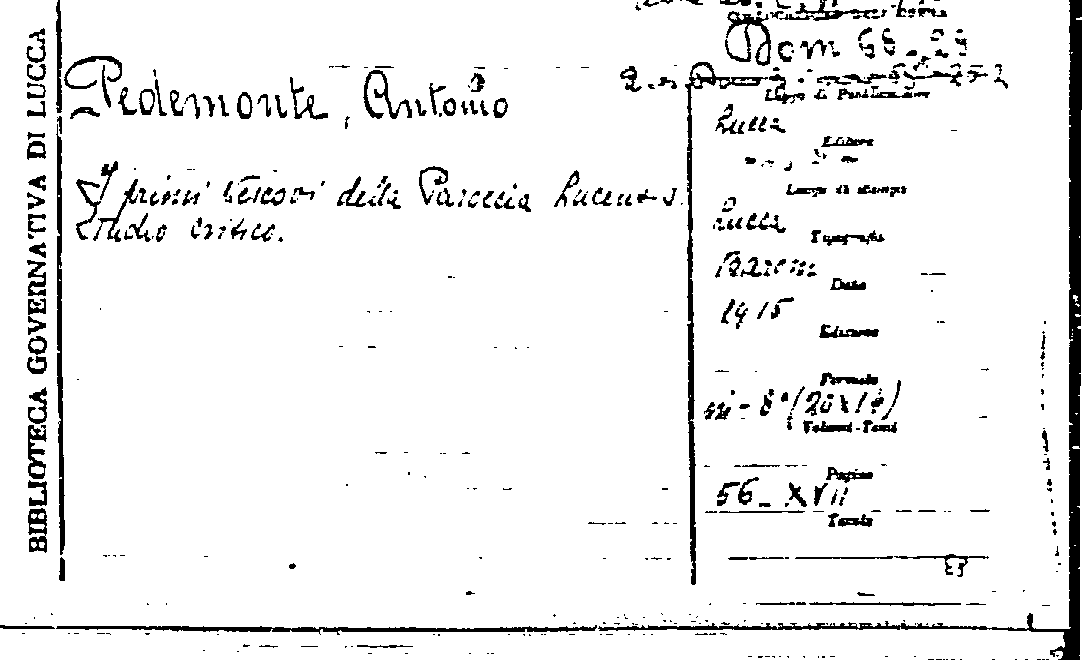 BIBLIOTECA GOVERNATIVA DI LUCCA
Pedemonte, Antonio
I primi vescovi della Parœcia Lucensis.
Studio critico.
COLLOCAZIONE DELL'OPERA
Dom 68.29
Luogo di Pubblicazione
Lucca
Editore
Luogo di stampa
Lucca
Tipografia
Baroni
Data
1915
Edizione
Formato
in-8°(20x14)
Volumi-Tomi
Pagine
56-XVII
Tavole